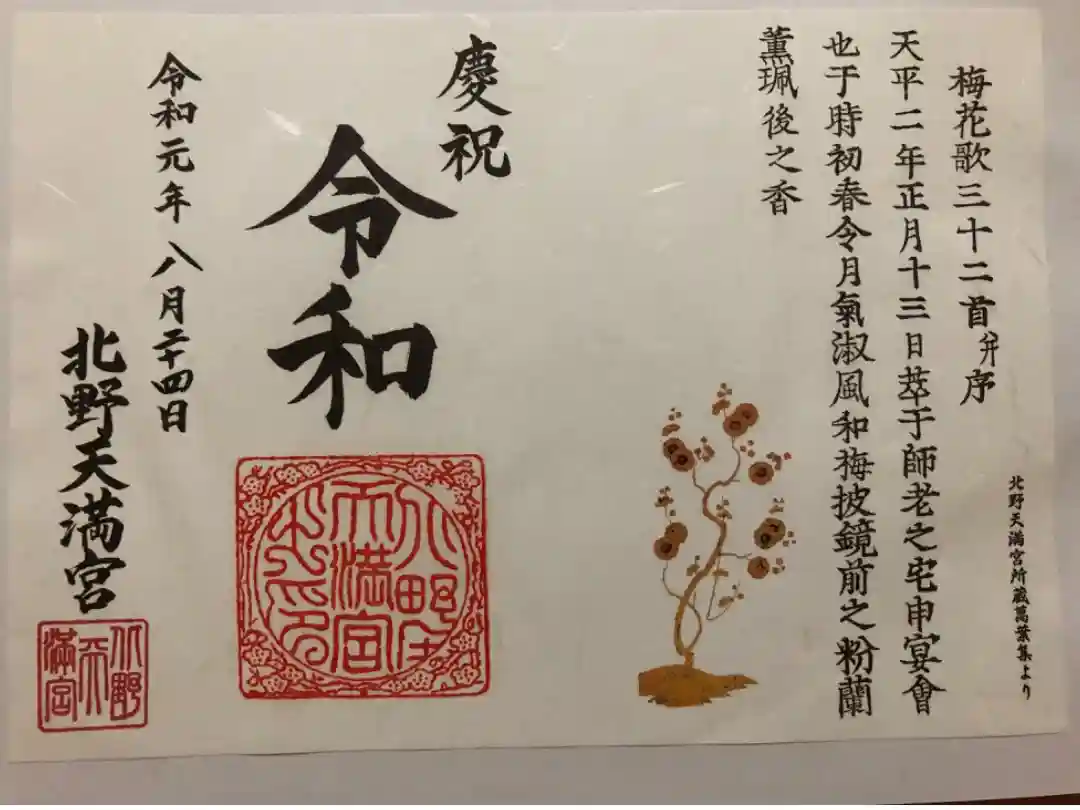 北野天満宮所蔵萬葉集より
梅花歌三十二首并序
天平二年正月十三日萃于師老之宅申宴會
也于時初春令月氣淑風和梅披鏡前之粉蘭
薫珮後之香
慶祝
令和
天満宮
令和元年 八月二十四日
北野天満宮
北野
天
滿宮